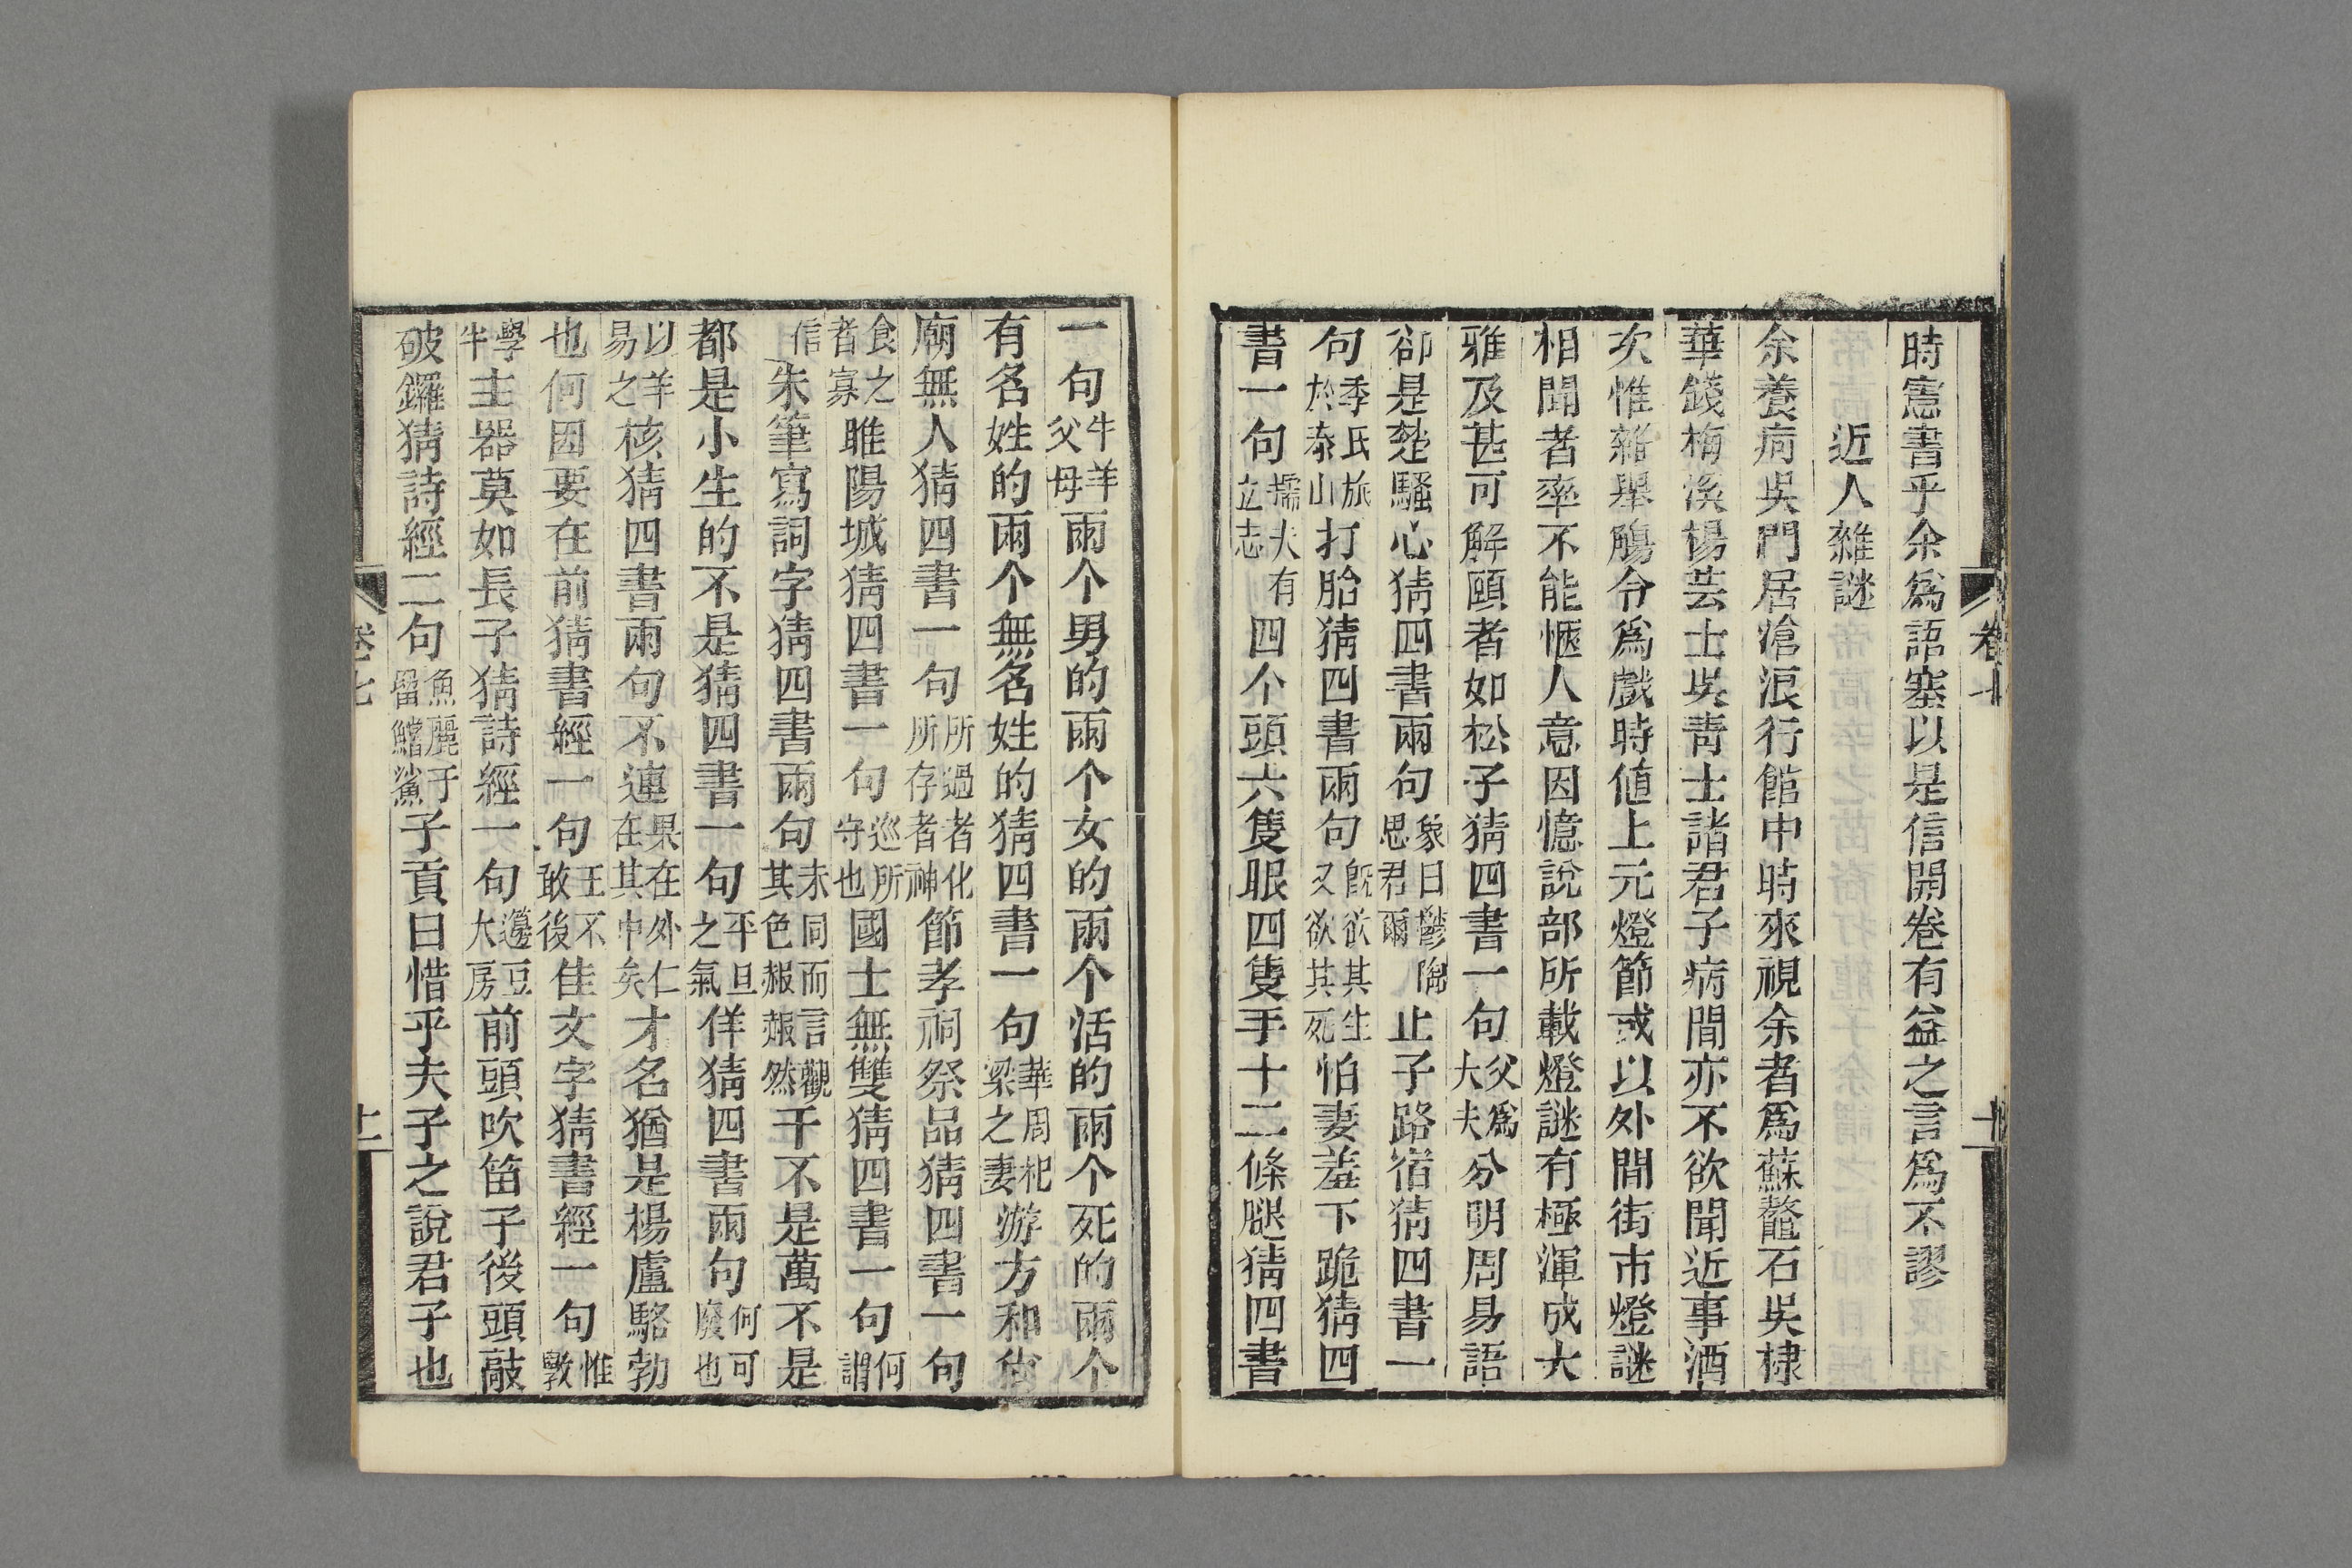 時憲書乎余爲語塞以是信開卷有益之言爲不謬
近人雜謎
余養疴吳門居滄浪行館中時來視余者爲蘇鼇石吳棣
華錢梅溪楊芸士吳青士諸君子病間亦不欲聞近事酒
次惟雜舉觴令爲戲時値上元燈節或以外間街市燈謎
相聞者率不能愜人意因憶說部所載燈謎有極渾成大
雅及甚可解頤者如松子猜四書一句父爲大夫分明周易語
卻是楚騷心猜四書兩句象曰鬱陶思君爾止子路宿猜四書一
句季氏旅於泰山打胎猜四書兩句旣欲其生又欲其死怕妻羞下跪猜四
書一句懦夫有立志四个頭六隻眼四隻手十二條腿猜四書
一句牛羊父母兩个男的兩个女的兩个活的兩个死的兩个
有名姓的兩个無名姓的猜四書一句華周杞梁之妻游方和尙
廟無人猜四書一句所過者化所存者神節孝祠祭品猜四書一句
食之者寡睢陽城猜四書一句巡所守也國士無雙猜四書一句何謂
信朱筆寫詞字猜四書兩句未同而言觀其色赧赧然千不是萬不是
都是小生的不是猜四書一句平旦之氣佯猜四書兩句何可廢也
以羊易之核猜四書兩句不連果在外仁在其中矣才名猶是楊盧駱勃
也何因要在前猜書經一句王不敢後佳文字猜書經一句惟斆
學半主器莫如長子猜詩經一句籩豆大房前頭吹笛子後頭敲
破鑼猜詩經二句魚麗于罶鱨鯊子貢曰惜乎夫子之說君子也
卷七
十
卷七
十一